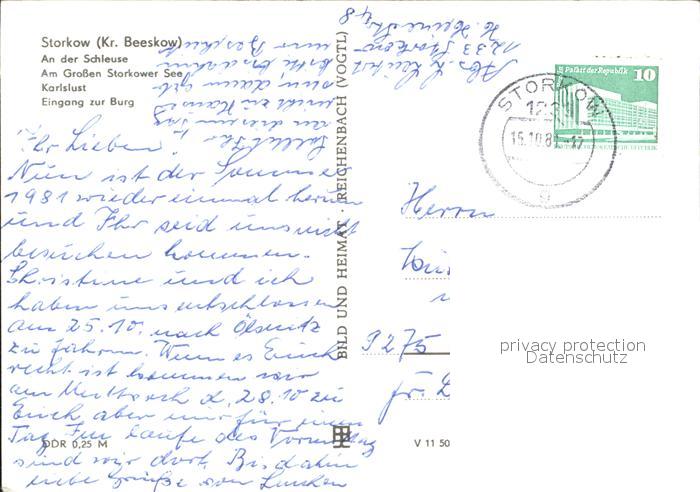 Storkow (Kr. Beeskow)
An der Schleuse
Am Großen Storkower See
Karlslust
Eingang zur Burg
Ihr Lieben!
Nun ist der Sommer
1981 wieder einmal herum
und Ihr seid uns nicht
besuchen kommen.
Christine und ich
haben uns entschlossen
am 25.10. nach Ölsnitz
zu fahren. Wenn es Euch
recht ist kommen wir
am Mittwoch d. 28.10 zu
Euch aber nur für einen
Tag. Im Laufe des Vormittag
sind wir dort. Bis dahin
liebe Grüße von
Solltet Ihr
an diesem Tag
nicht zu Hause
sein, dann
bitte
nur Bescheid
Abs.
1233 Storkow
H. Heine Str.
48
DDR 0,25 M
BILD UND HEIMAT · REICHENBACH (VOGTL)
V 11 50
Palast der Republik 10
STORKOW
15.10.81-17
Herrn
9275
privacy protection
Datenschutz